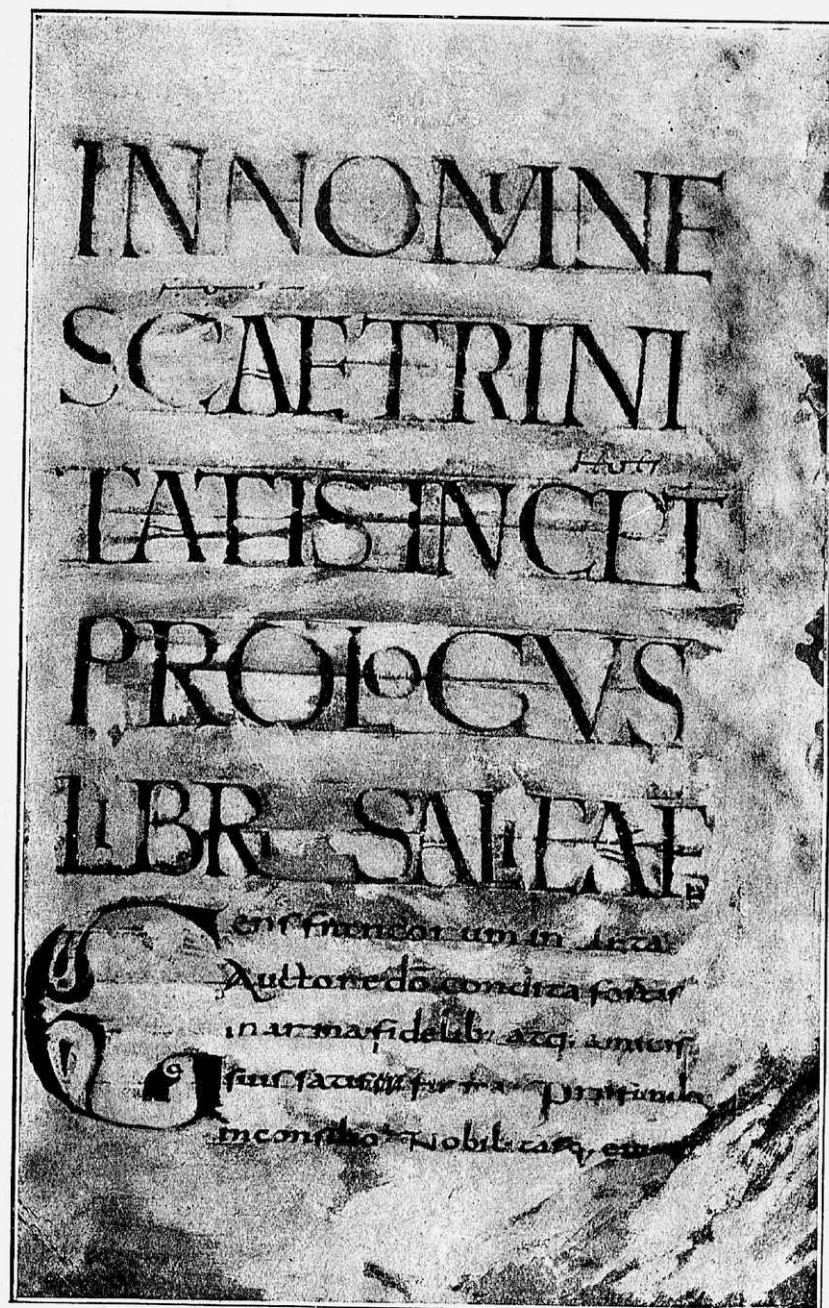 IN NOMINE
SCAE TRINI
TATIS INCIPIT
PROLOGUS
LIBRI SALICAE
Gens francorum in
Auctore dō condita fortis
in arma fidelib; atq; amicis
suis satisq; firma profunda
in consilio Nobilitasq;